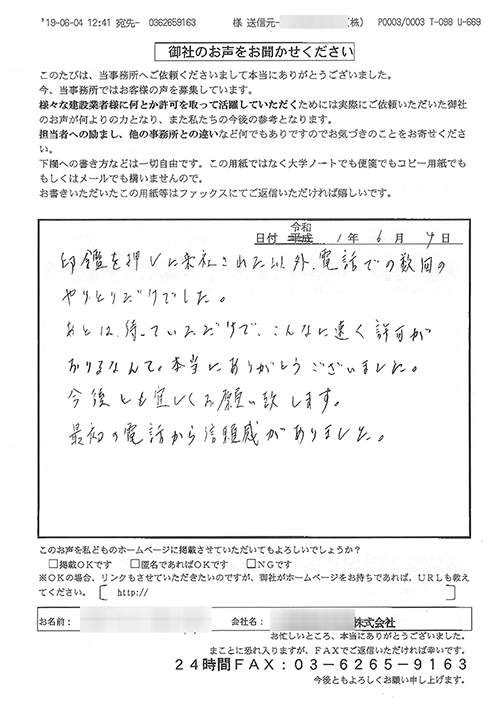 '19-06-04 12:41 宛先- 0362659163 様 送信元- (株) P0003/0003 T-098 U-669
御社のお声をお聞かせください
このたびは、当事務所へご依頼くださいまして本当にありがとうございました。
今、当事務所ではお客様の声を募集しています。
様々な建設業者様に何とか許可を取って活躍していただくためには実際にご依頼いただいた御社
のお声が何よりの力となり、また私たちの今後の参考となります。
担当者への励まし、他の事務所との違いなど何でもありですのでお気づきのことをお寄せくださ
い。
下欄への書き方などは一切自由です。この用紙ではなく大学ノートでも便箋でもコピー用紙でも
もしくはメールでも構いませんので。
お書きいただいたこの用紙等はファックスにてご返信いただければ嬉しいです。
令和
日付 平成 1年 6月 4日
印鑑を押しに来社された以外、電話での数回の
やりとりだけでした。
あとは、待っていただけで、こんなに速く許可が
おりるなんて。本当にありがとうございました。
今後とも宜しくお願い致します。
最初の電話から信頼感がありました。
このお声を私どものホームページに掲載させていただいてもよろしいでしょうか?
□掲載OKです □匿名であればOKです □NGです
※OKの場合、リンクもさせていただきたいのですが、御社がホームページをお持ちであれば、URLも教え
てください。 [ http:// ]
お名前: 会社名: 株式会社
お忙しいところ、本当にありがとうございました。
まことに恐れ入りますが、FAXでご返信いただければ幸いです。
24時間FAX:03-6265-9163
今後ともよろしくお願い申し上げます。